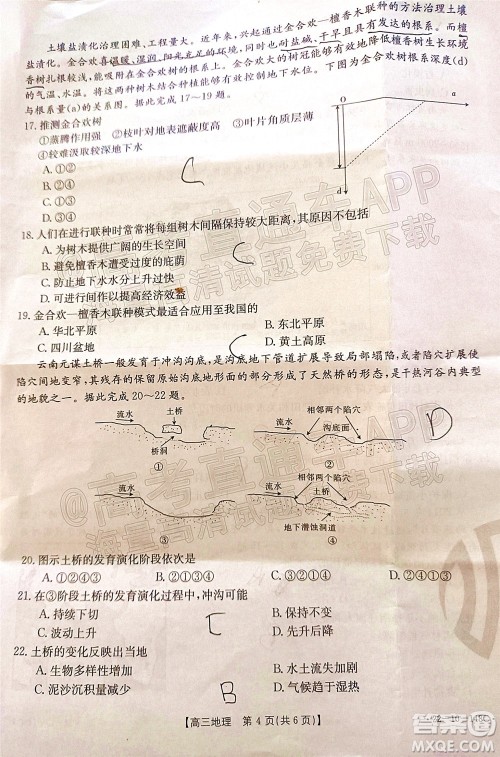 土壤盐渍化治理困难、工程量大。近年来，金合欢—檀香木联种的方法治理土壤
盐渍化。金合欢喜温暖、湿润、阳光充足的环境，耐盐碱、干旱且具有发达的根系。而檀
香树扎根较浅，能够吸附在金合欢树的根系上。金合欢的树冠能够降低檀香树生长环境
的气温、水温，这两种树木的联种有效控制了地下水水位。下图为金合欢树根系深度(d)
与根系量(a)的关系图。据此完成17～19题。
17.推测金合欢树
①蒸腾作用强 ②枝叶对地表遮蔽度高 ③叶片角质层厚
④较难汲取较深地下水
A.①②
B.③④
C.①③
D.②④
C
O
a
d
18.人们在进行联种时常常将每组树木间隔保持较大距离，其原因不包括
A.为树木提供广阔的生长空间
B.避免檀香木遭受过度的庇荫
C.防止地下水水分上升过快
D.可进行间作以提高经济效益
C
19.金合欢—檀香木联种模式最适合应用至我国的
A.华北平原 B.东北平原
C.四川盆地 D.黄土高原
C
云南元谋土桥一般发育于冲沟沟底，是沟底地下管道扩展导致局部塌陷，或者陷穴扩展使
陷穴间地变窄，其残存的保留原始沟底地面的部分形成了天然桥的形态，是干热河谷内典型
的地貌之一。据此完成20～22题。
流水 土桥 桥洞 ①
流水 相邻两个陷穴 沟底面 ②
流水 ③
流水 相邻两个陷穴 土桥 地下潜蚀洞道 ④
D
20.图示土桥的发育演化阶段依次是
A.①②④③ B.②④①③ C.①④②③ D.④②①③
21.在③阶段的发育演化过程中，冲沟可能
A.持续下切 B.保持不变
C.波动上升 D.先升后降
C
22.土桥的变化反映出当地
A.生物多样性增加 B.水土流失严重
C.泥沙沉积量大 D.气候显著湿热
B
【高三地理 第4页(共6页)】
高考直通车APP
海量高清试题免费下载
高考直通车APP
海量高清试题免费下载
答案圈
MXQE.COM